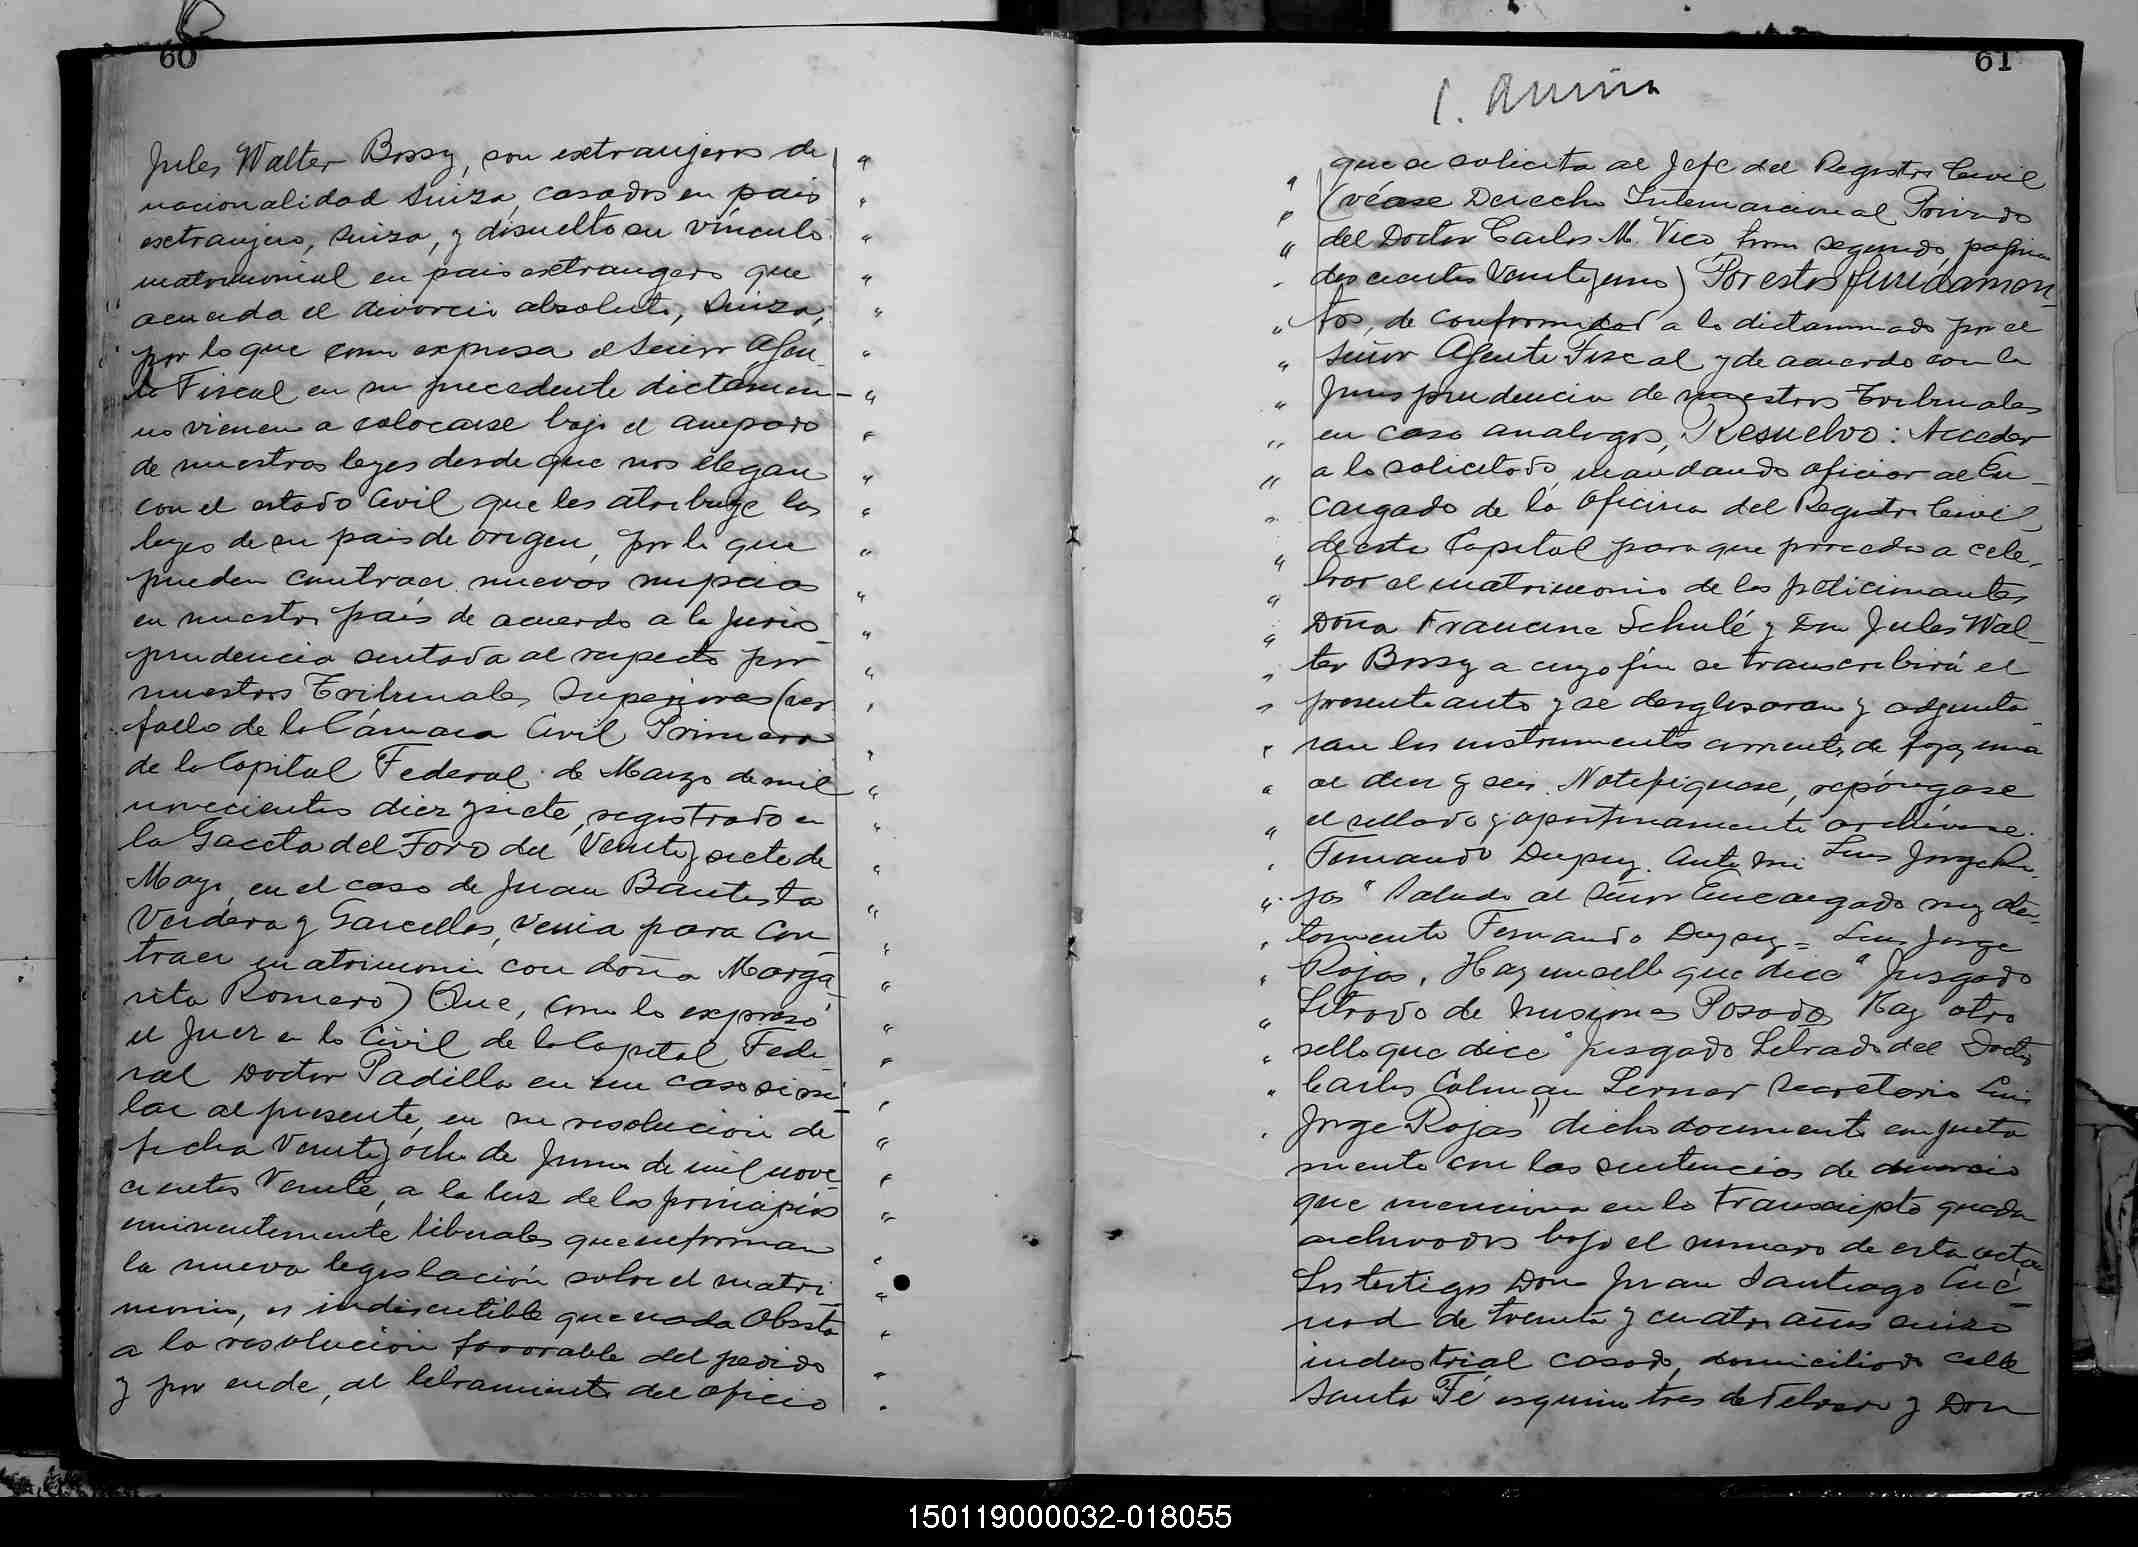 60
Jules Walter Bossy, son extranjeros de
nacionalidad Suiza, casados en pais
extranjero, Suiza, y disuelto su vínculo
matrimonial en pais extrangero que
acuerda el divorcio absoluto, Suiza,
por lo que como expresa el Señor Agen
te Fiscal en su precedente dictamen
no vienen a colocarse bajo el amparo
de nuestras leyes desde que nos llegan
con el estado Civil que les atribuye las
leyes de su pais de origen, por lo que
pueden contraer nuevas nupcias
en nuestro país de acuerdo a la juris
prudencia sentada al respecto por
nuestros Tribunales Superiores (ver
fallo de la Cámara Civil Primera
de la Capital Federal de Marzo de mil
novecientos diez y siete, registrado en
la Gaceta del Foro del Veinte y siete de
Mayo, en el caso de Juan Bautista
Verdera y Garcellos, venia para Con
traer matrimonio con doña Marga
rita Romero) Que, como lo expresó
el Juez en lo Civil de la Capital Fede
ral Doctor Padilla en un caso simi
lar al presente, en su resolución de
fecha Veinte y ocho de Junio de mil nove
cientos Veinte, a la luz de los principios
eminentemente liberales que informan
la nueva legislación sobre el matri
monio, es indiscutible que nada Obsta
a la resolución favorable del pedido
y por ende, al libramiento del oficio
61
que se solicita al Jefe del Registro Civil
(véase Derecho Internacional Privado
del Doctor Carlos M. Vico, tomo segundo, pagina
doscientos Veinte y uno) Por estos fundamen
tos, de conformidad a lo dictaminado por el
Señor Agente Fiscal y de acuerdo con la
Jurisprudencia de nuestros Tribunales
en caso analogos, Resuelvo: Acceder
a lo solicitado, mandando oficiar al En
cargado de la Oficina del Registro Civil
de esta Capital para que proceda a cele
brar el matrimonio de los peticionantes
Doña Francine Schulé y Don Jules Wal
ter Bossy a cuyo fin se transcribirá el
presente auto y se desglosaran y adjunta
ran los instrumentos corriente de foja una
al diez y seis. Notifiquese, repóngase
el sellado y oportunamente archivese.
Fernando Dupuy. Ante mi Luis Jorge Ro
jas" Saludo al Señor Encargado muy aten
tamente Fernando Dupuy = Luis Jorge
Rojas. Hay un sello que dice "Jusgado
Letrado de Misiones Posadas Hay otro
sello que dice "Jusgado Letrado del Doctor
Carlos Colman Lerner Secretario Luis
Jorge Rojas" dicho documento conjunta
mente con las sentencias de divorcio
que menciona en lo transcripto queda
archivados bajo el numero de esta acta
Los testigos Don Juan Santiago Cué
nod de treinta y cuatro años suizo
industrial casado, domiciliado calle
Santa Fé esquina tres de Febrero y Don
150119000032-018055